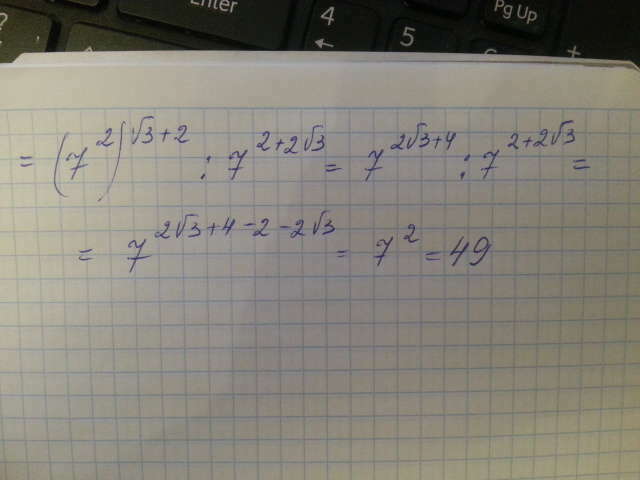 ?
Enter
4
←
5
Pg Up
+
= (7^2)^{√3+2} : 7^{2+2√3} = 7^{2√3+4} : 7^{2+2√3} =
= 7^{2√3+4-2-2√3} = 7^2 = 49